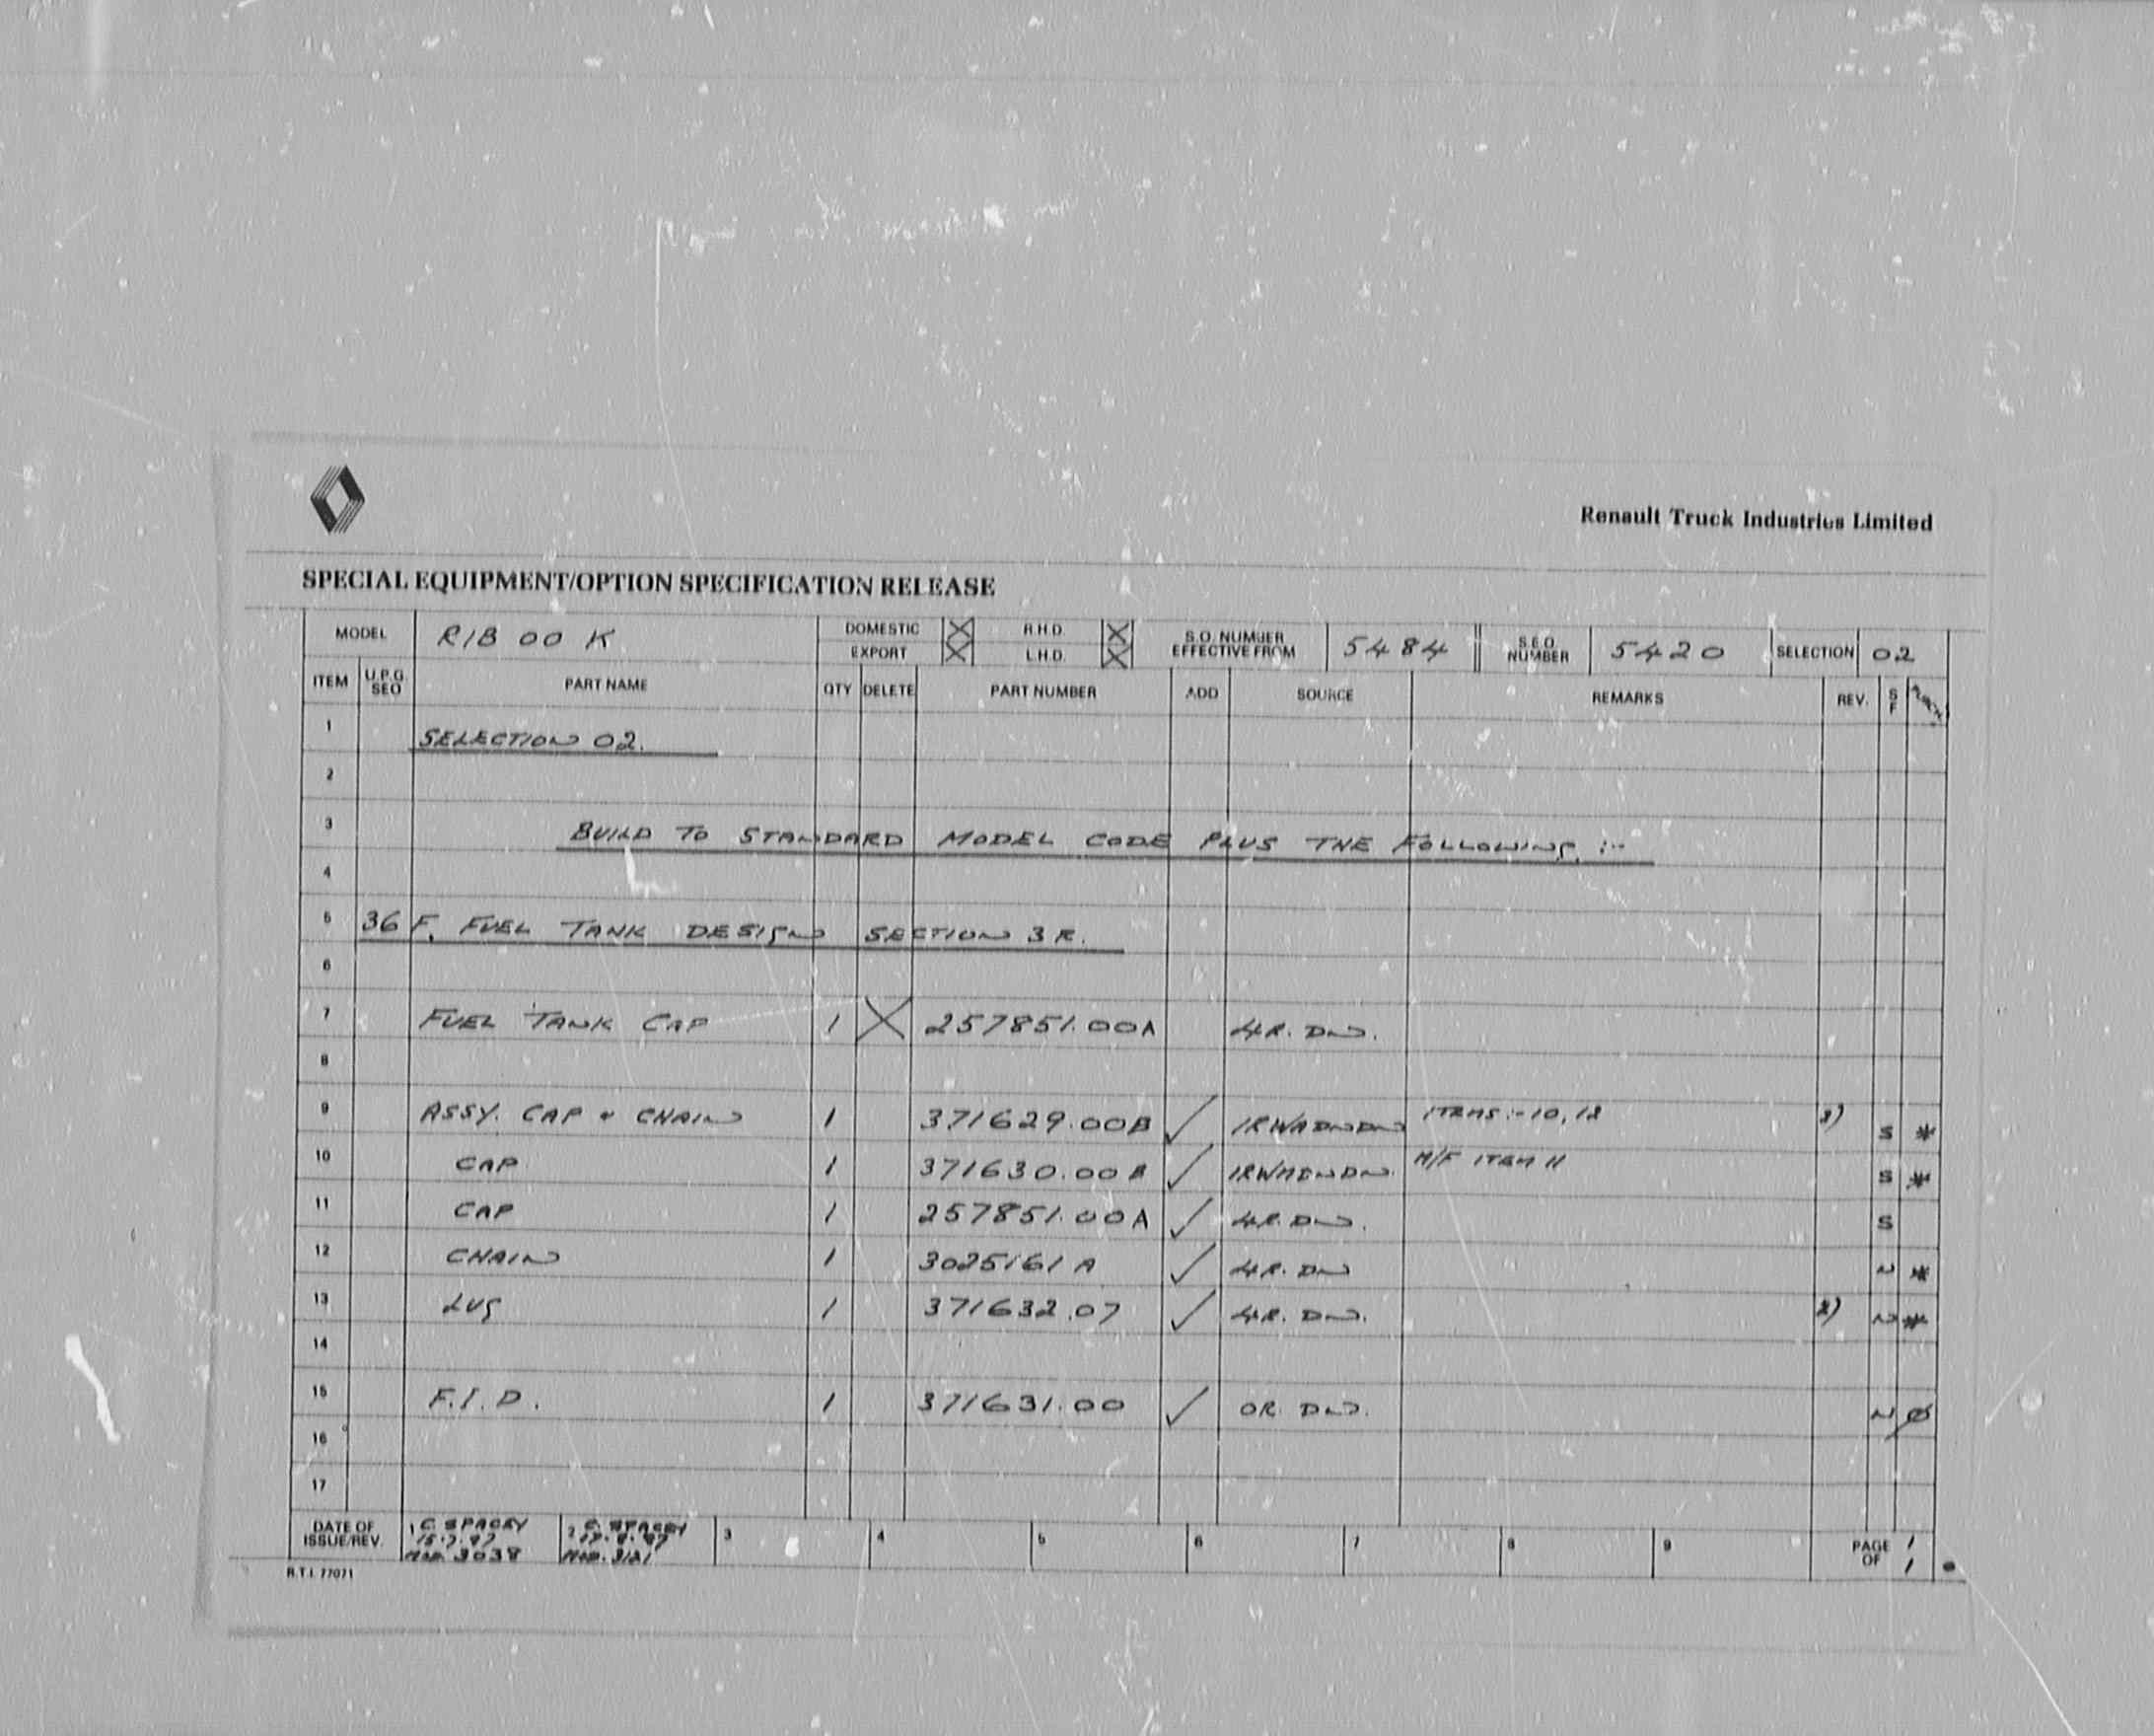 Renault Truck Industries Limited
SPECIAL EQUIPMENT/OPTION SPECIFICATION RELEASE
MODEL R1B 00 K DOMESTIC X R.H.D. X S.O. NUMBER EFFECTIVE FROM 5484 S.E.O. NUMBER 5420 SELECTION 02
EXPORT X L.H.D. X
ITEM U.P.G. SEQ PART NAME QTY DELETE PART NUMBER ADD SOURCE REMARKS REV. S F
1 SELECTION 02.
2
3 BUILD TO STANDARD MODEL CODE PLUS THE FOLLOWING :-
4
5 36 F. FUEL TANK DESIGN SECTION 3R.
6
7 FUEL TANK CAP 1 X 257851.00A 4R. DN.
8
9 ASSY. CAP & CHAIN 1 371629.00B ✓ ITEMS:- 10, 12 S *
10 CAP 1 371630.00 ✓ M/F ITEM 11 S *
11 CAP 1 257851.00A ✓ 4R. DN. S
12 CHAIN 1 3025161 A ✓ 4R. DN N *
13 LUG 1 371632.07 ✓ 4R. DN. 2) N *
14
15 F.I.D. 1 371631.00 ✓ OR DN. N Ø
16
17
DATE OF ISSUE/REV. 1 C. SPACEY 2 C. SPACEY 3 4 5 6 7 8 9 PAGE 1 OF 1
15.7.87
MOD. 3038 MOD. 3121
R.T.I. 77071